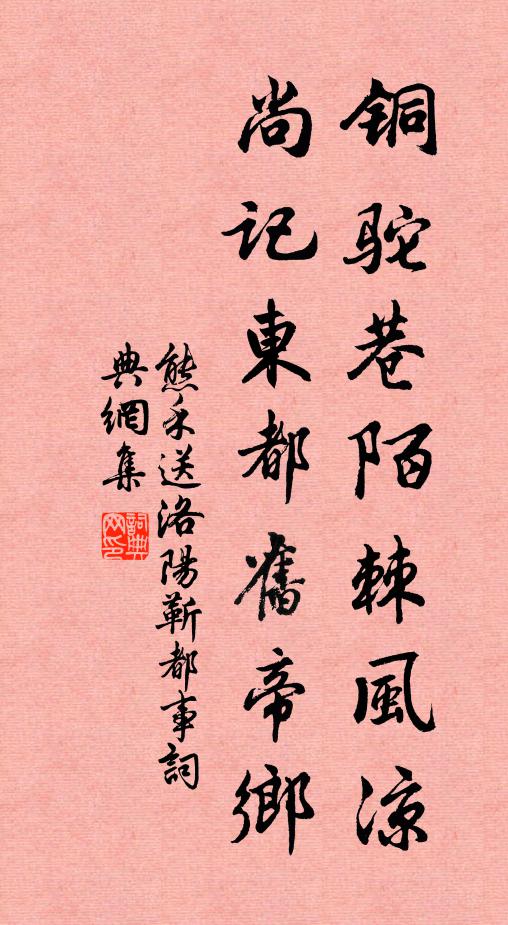 铜驼巷陌棘風涼
尚记東都舊帝鄉
熊禾送洛陽靳都事詞
典網集
詞典
网印